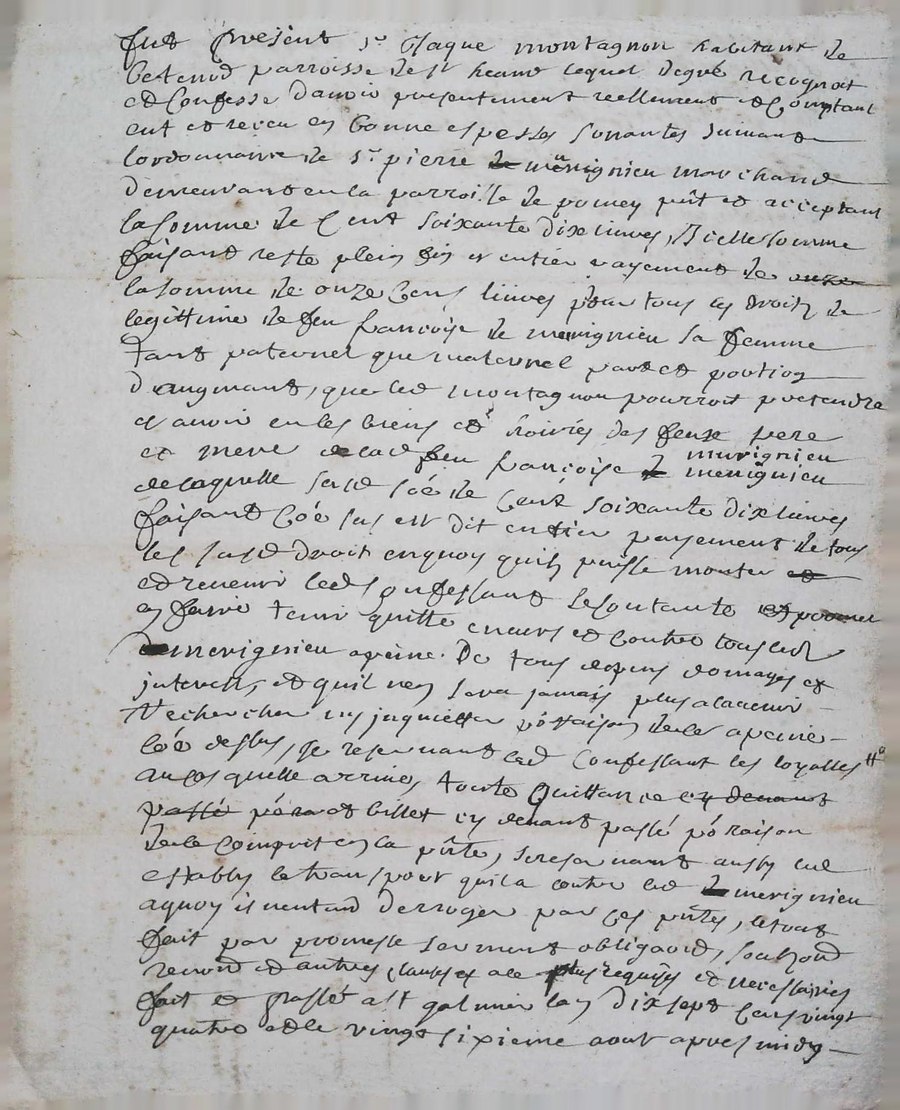 fut present sr Claque montagnon habitant de
parroisse de st heand lequel degré recognoit
et Confesse davoir presentement reellement et Comptant
eut et receu en bonne especes sonantes suivant
lordonnance de sr pierre de merignieu marchand
demeurant en la parroisse de pomey pnt et acceptant
la somme de Cent soixante dix livres, Icelle somme
faisant reste plein fin et entier payement de
la somme de onze Cens livres pour tous les droits de
legittime de feu françoise de merignieu sa femme
tant paternel que maternel part et portion
d'augmant, que led montagnon pourroit pretendre
et avoir en les biens et hoiries des feux pere
et mere de lad feu françoise de merignieu merignieu
de laquelle susd soe de Cent soixante dix livres
faisant Coe sus est dit entier payement de tous
les susd droit en quoy quils puisse monter et
et revenir led Confessant se contante et promet
en faire tenir quitte envers et contre tous led
de merignieu a peine De tous depens domages et
interets, et quil nen sera jamais plus alavenir
rechercher ny inquietter raison de ce a peine
coe dessus, se reservant led Confessant les loyalles
au cas quelle arrive, toute Quittance cy devant
passé et billet cy devant passé po raison
de ce compris en la pnte, se reservant aussy led
estably le transport quil a contre led de merignieu
a quoy il nentend derroger par ces pntes, le tout
fait par promesse serment obligaon, soubzon
renon et autres clauses a ce plus requises et necessaires
fait et passé a st galmier lan dix sept Cens vingt
quatre et le vingt sixieme aout apres midy